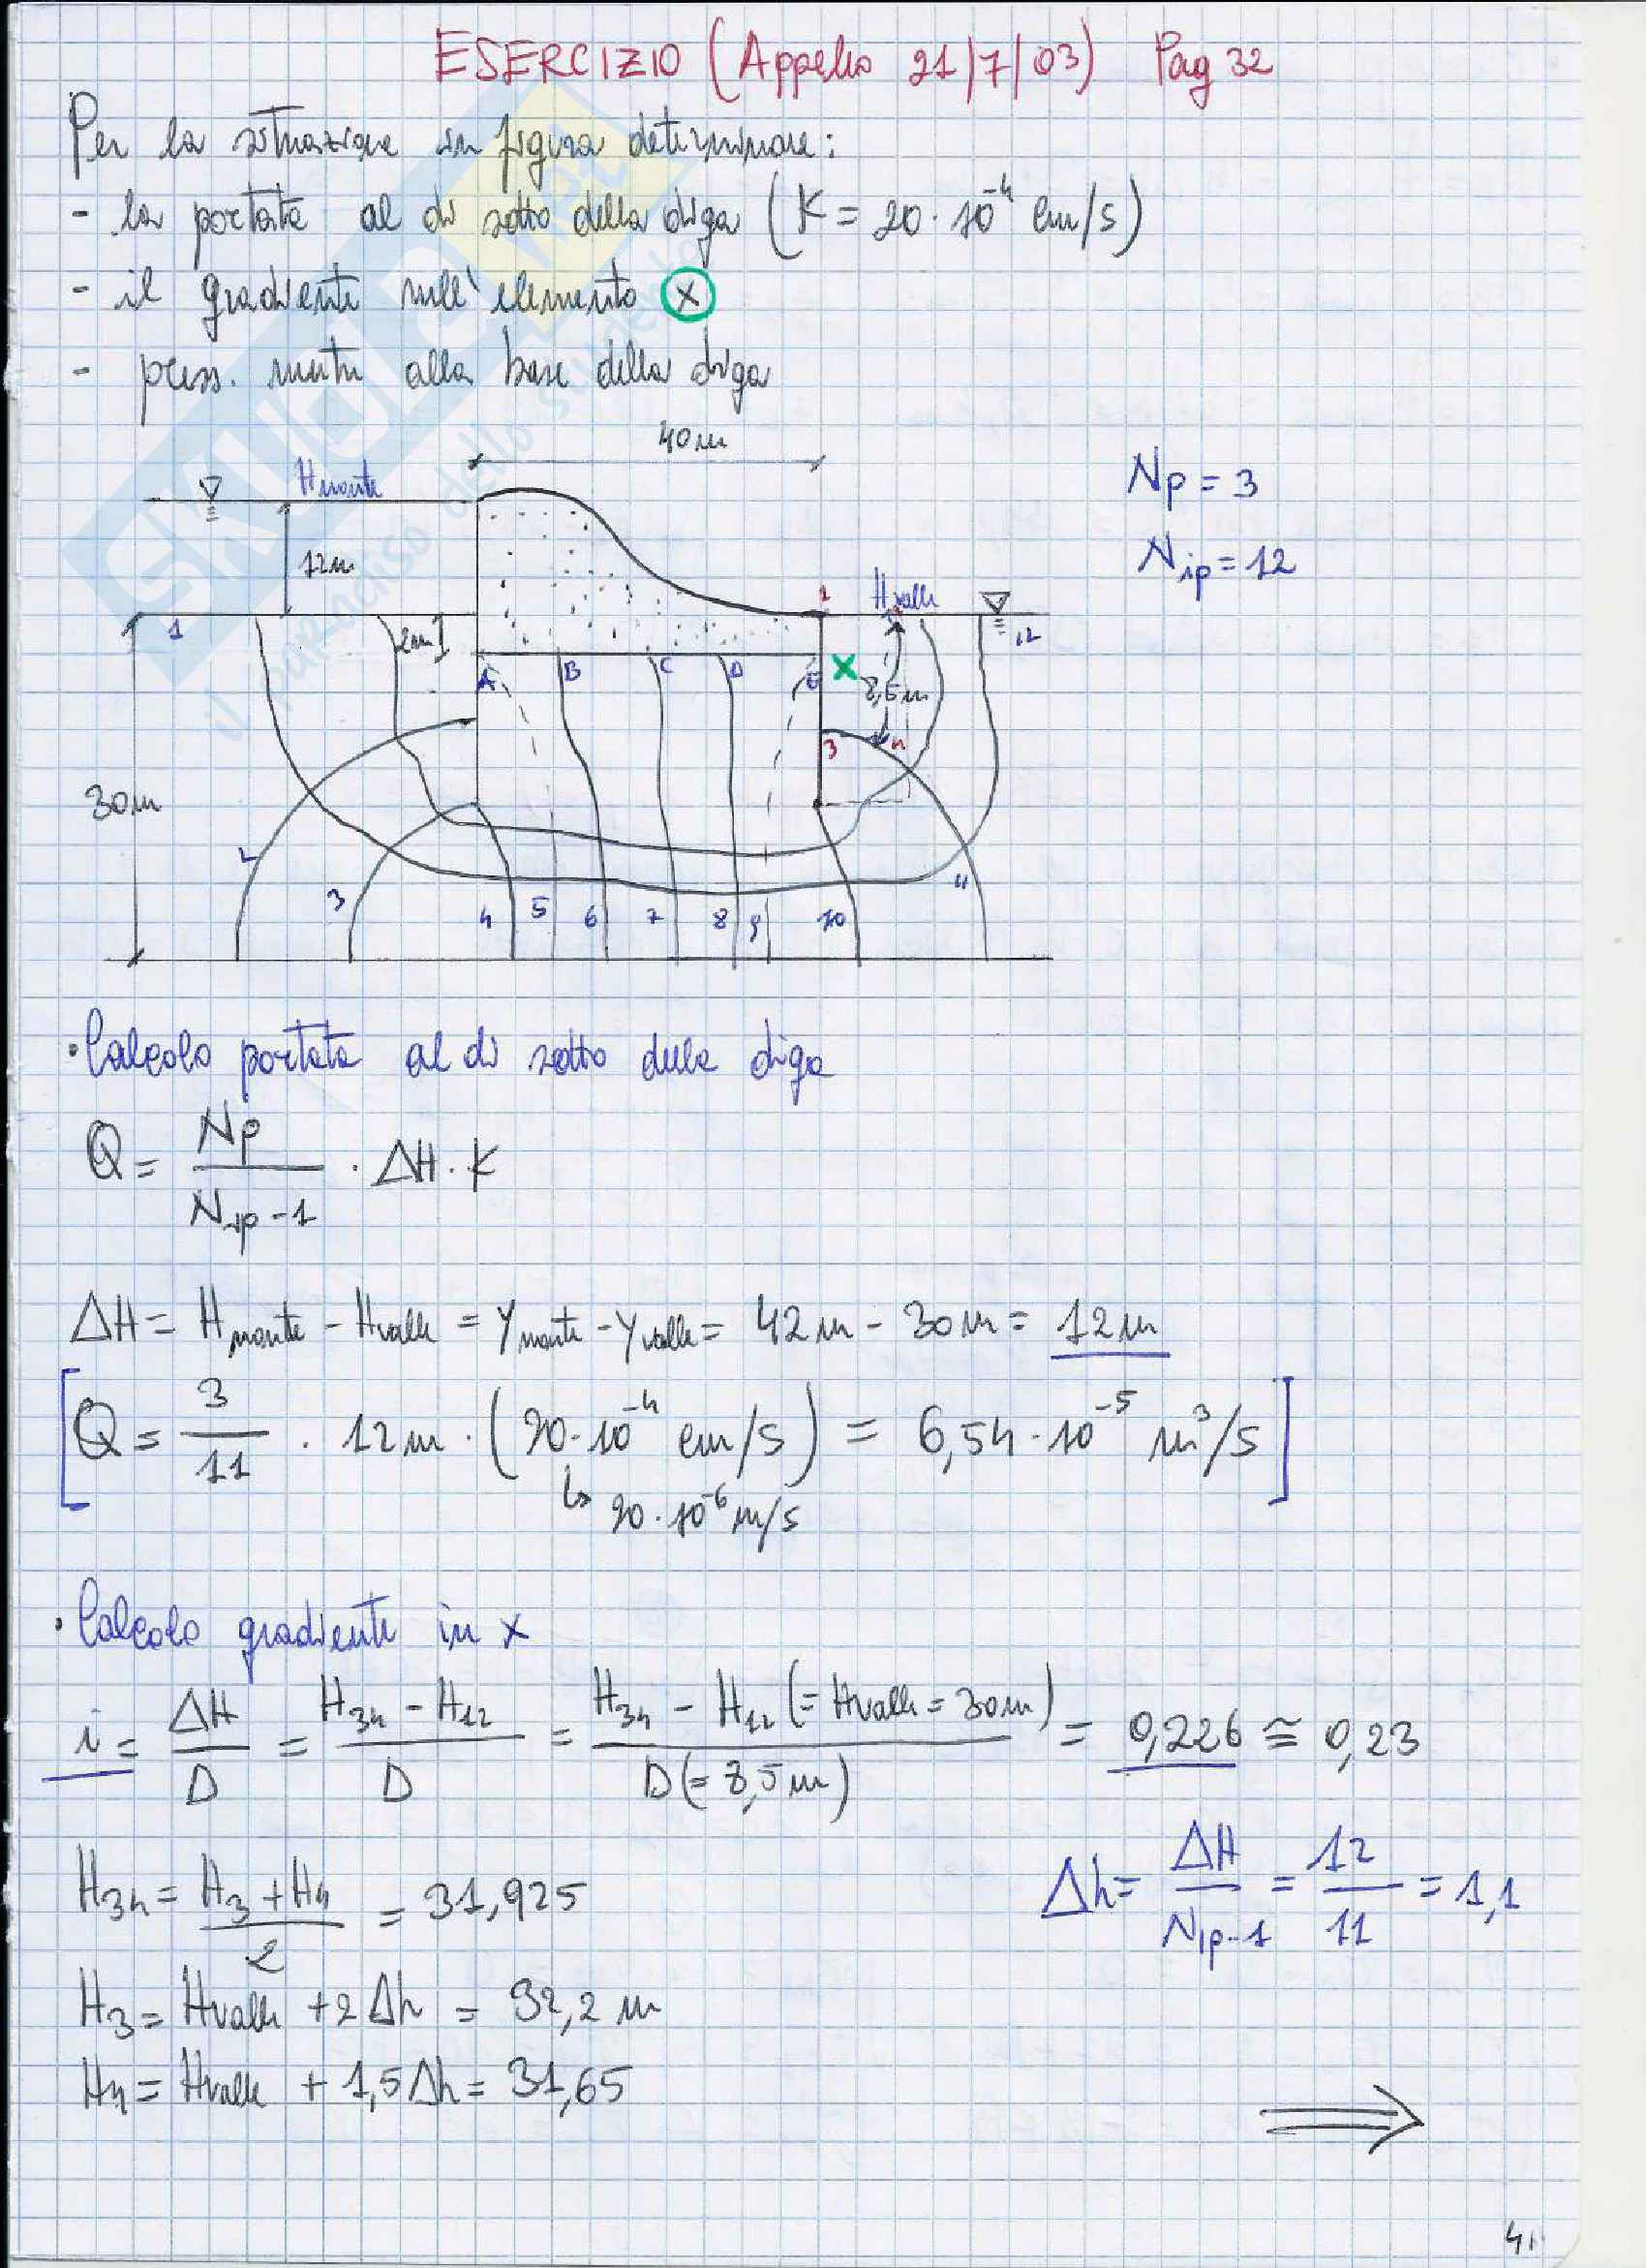 ESERCIZIO (Appello 21/7/03) Pag 32
Per la situazione in figura determinare:
- la portata al di sotto della diga (K = 20·10⁻⁴ cm/s)
- il gradiente sull'elemento ⓧ
- press. neutre alla base della diga
40m
Hmonte
Np = 3
Nip = 12
12m
Hvalle
1
2m
1
2
12
A
B
C
D
E
X
8,5m
3
4
30m
2
3
4
5
6
7
8
9
10
11
·Calcolo portata al di sotto della diga
Q = Np / Nip-1 · ΔH · K
ΔH = Hmonte - Hvalle = Ymonte - Yvalle = 42m - 30m = 12m
[Q = 3/11 · 12m · (20·10⁻⁴ cm/s) = 6,54·10⁻⁵ m³/s]
↳ 20·10⁻⁶ m/s
·Calcolo gradiente in x
i = ΔH/D = H34 - H12 / D = H34 - H12 (= Hvalle = 30m) / D (= 8,5m) = 0,226 ≅ 0,23
H34 = H3 + H4 / 2 = 31,925
Δh = ΔH / Nip-1 = 12/11 = 1,1
H3 = Hvalle + 2Δh = 32,2 m
H4 = Hvalle + 1,5Δh = 31,65
⟹